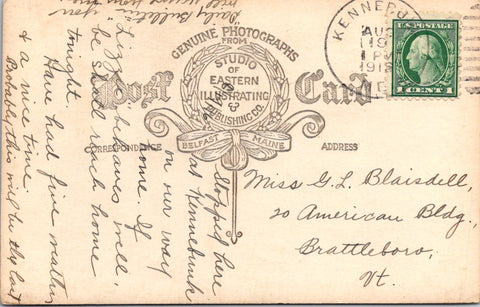 GENUINE PHOTOGRAPHS
FROM
STUDIO
OF
EASTERN
ILLUSTRATING
&
PUBLISHING CO.
BELFAST MAINE
Post Card
CORRESPONDENCE
ADDRESS
KENNEBU
AUG
1 PM
U.S. POSTAGE
1 CENT 1
Miss G. L. Blaisdell,
20 American Bldg.,
Brattleboro,
Vt.
Stopped here
at Kennebunk
on our way
home. If
Lizzie behaves well,
be shall reach home
tonight.
Have had fine weather
& a nice time.
Probably this will be the last
"Daily Bulletin"
you